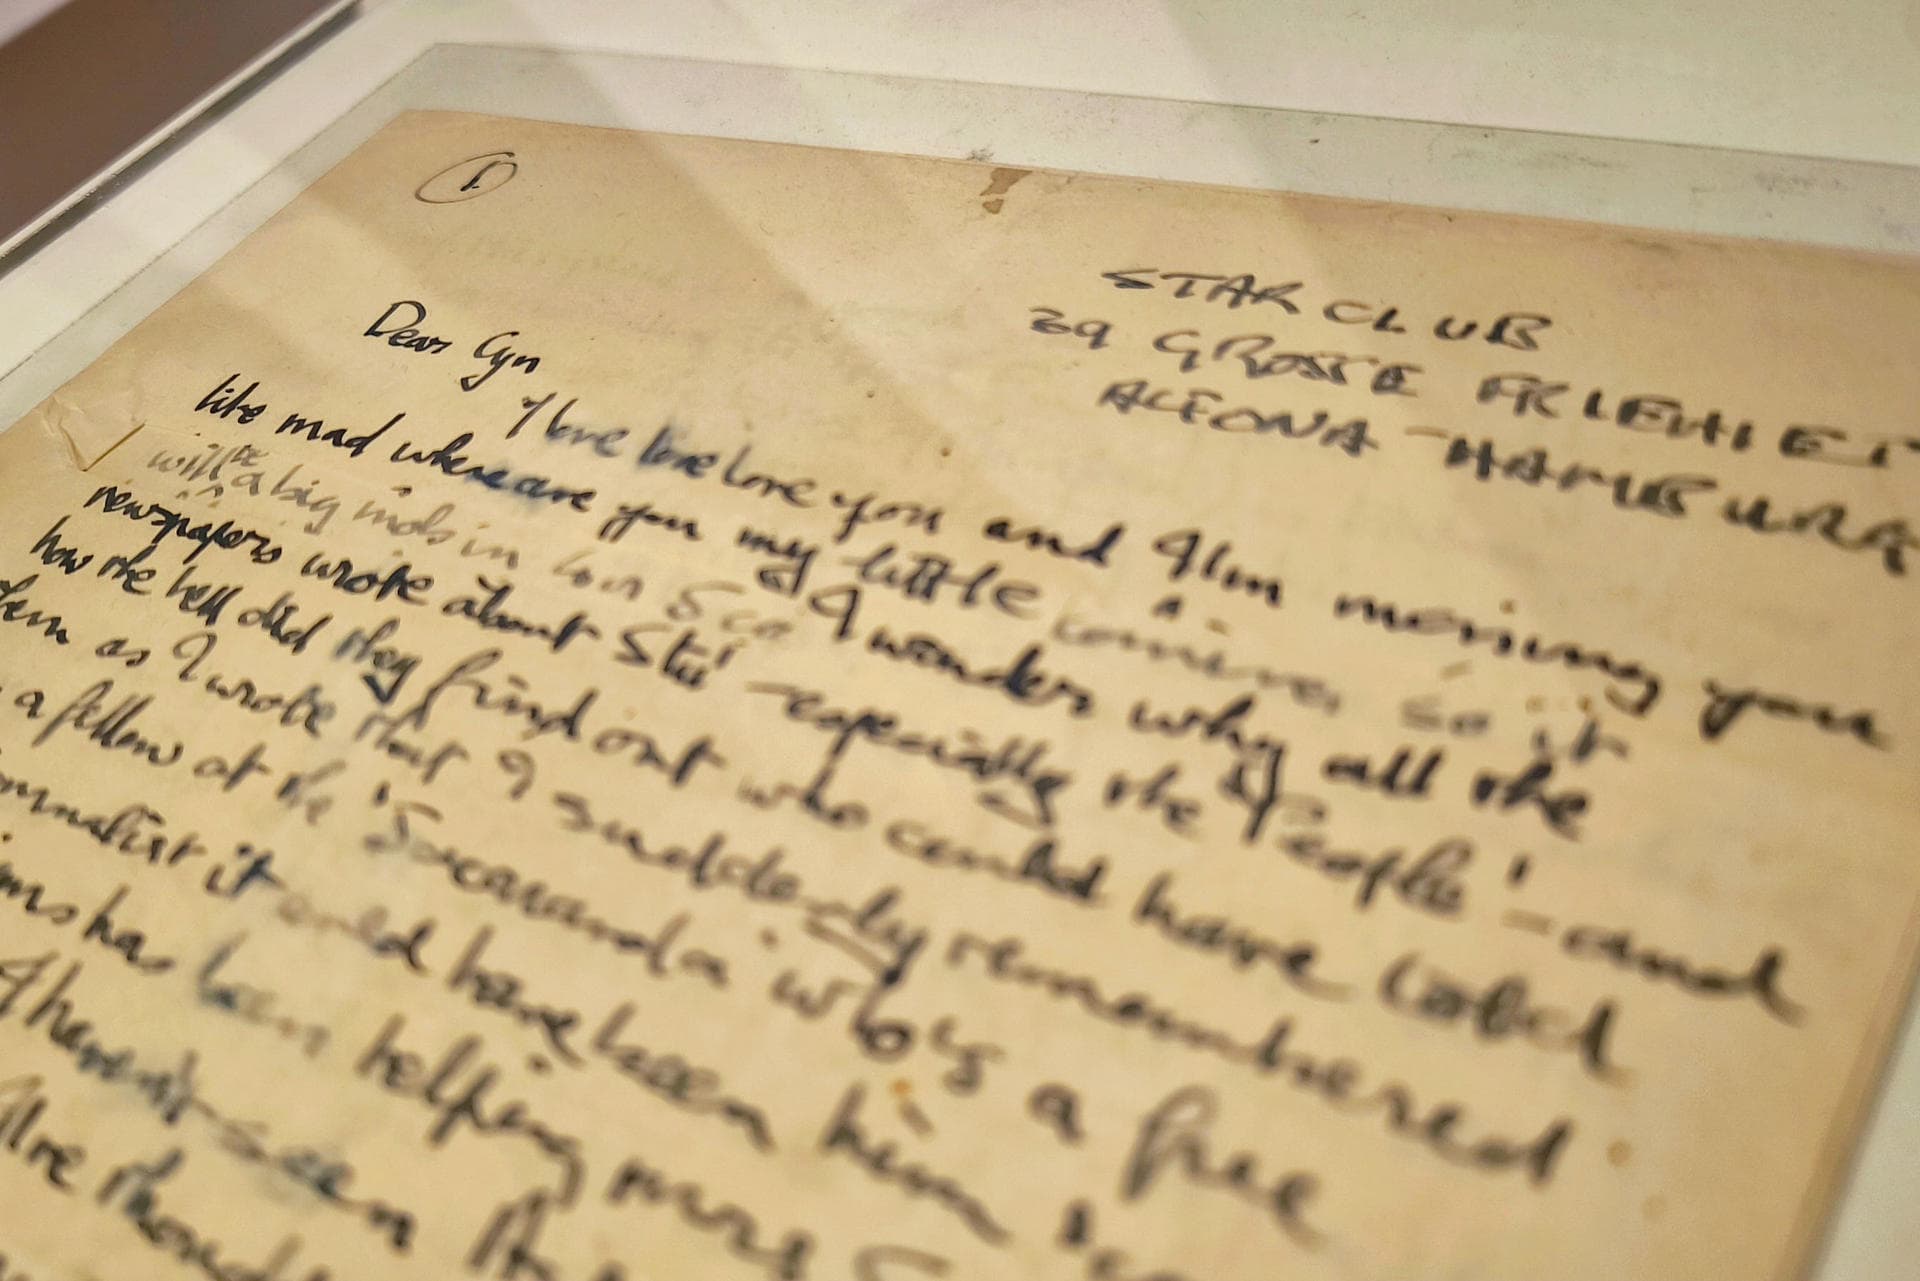 1.
STAR CLUB
39 GROSSE FRIEHIET
ALTONA - HAMBURG
Dear Cyn
I love love love you and I'm missing you
like mad where are you my little so it
will be a big mob in I wonder why all the
newspapers wrote about Stu' - especially the 'People' - and
how the hell did they find out who could have told
them as I wrote that I suddenly remembered
a fellow at the 'Jacaranda' who's a free
it could have been him
has been helping mrs S
I haven't seen